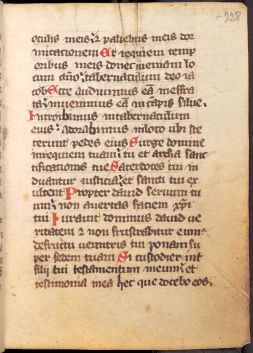 228
oculis meis ⁊ palebris meis dor
mitacionem Et requiem temp
oribus meis donec ueniam lo
cum dn̄o tabernaculum deo ia
cob Ecce audiuimus eā in effra
ta inuenimus eā in capis silue
Introibimus in tabernaculum
eius adorabimus in loco ubi ste
terunt pedes eius Surge domine
in requiem tuam tu et archa sanc
tificationis tue Sacerdotes tui in
duantur iusticia et sancti tui ex
ultent Propter dauid seruum tu
um non auertas faciem xp̄i
tui Iurauit dominus dauid ue
ritatem ⁊ non frustrabitur eum
de fructu uentris tui ponam su
per sedem tuam Si custodierint
filij tui testamentum meum et
testimonia mea hec que docebo eos